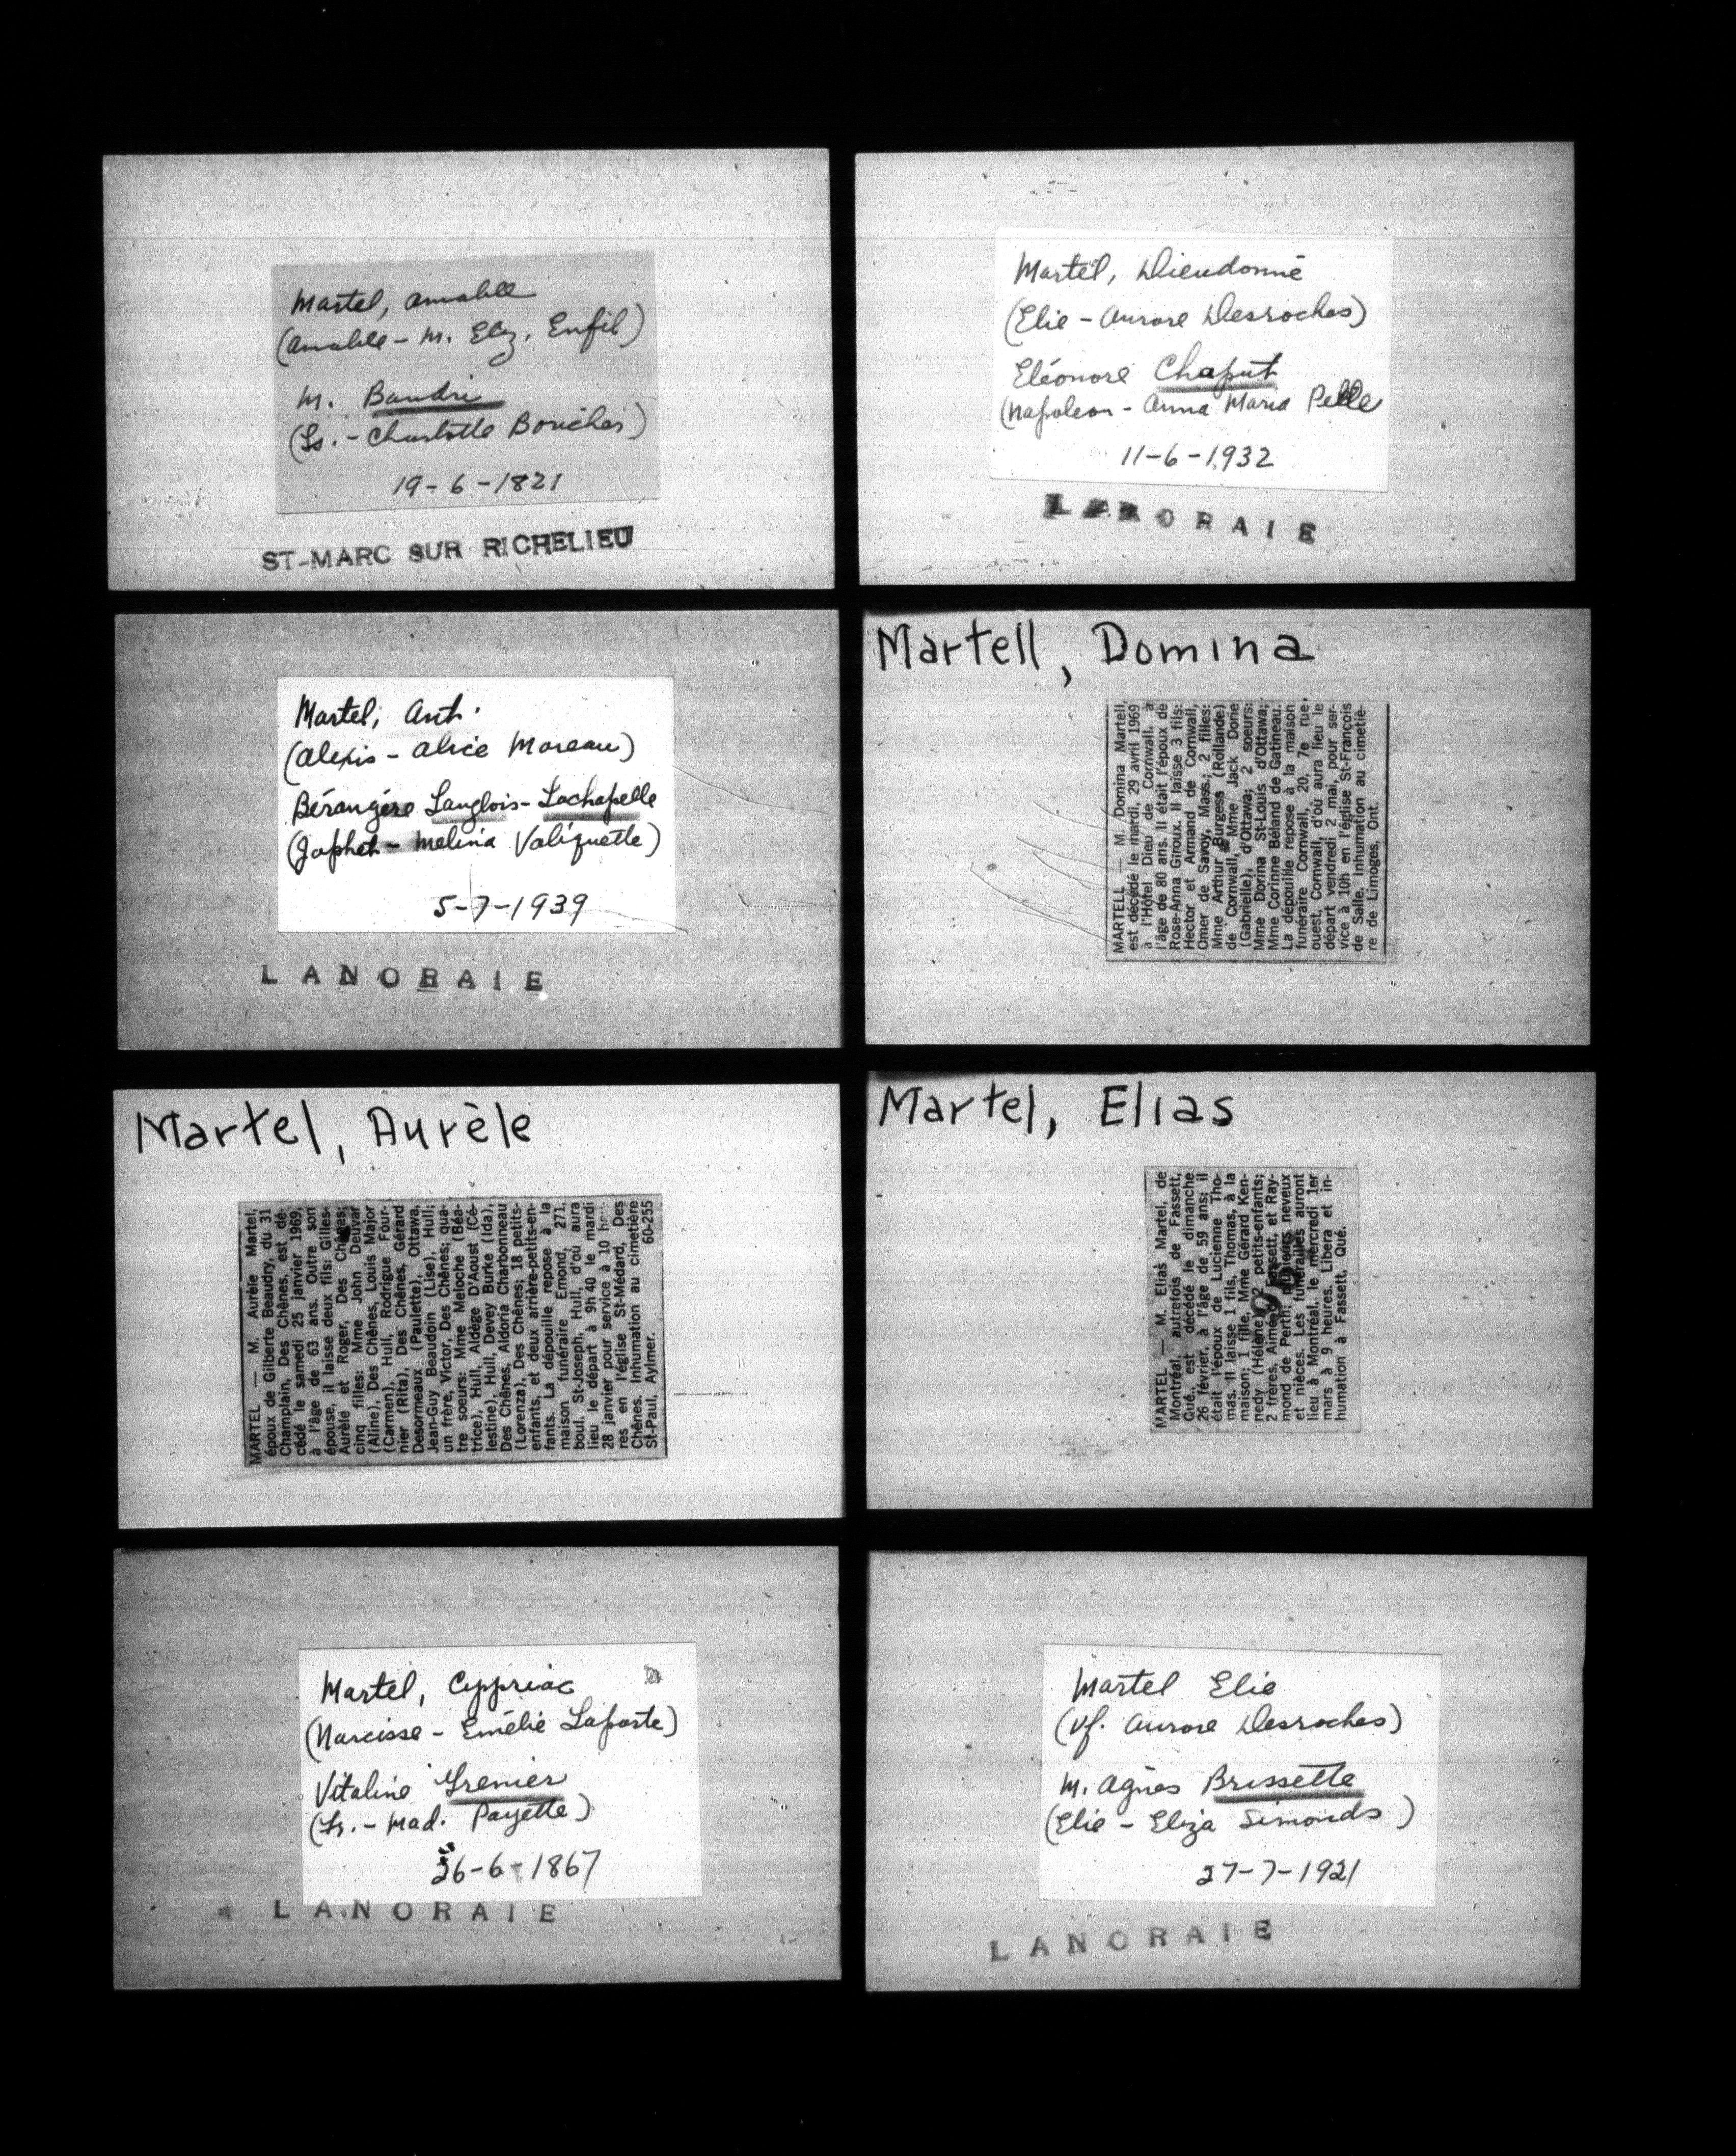 Martel, Amable
(Amable - M. Elz. Enfil)
M. Baudri
(Ls. - Charlotte Boucher)
19-6-1821
ST-MARC SUR RICHELIEU
Martel, Ant.
(Alexis - Alice Moreau)
Bérangère Langlois-Lachapelle
(Japhet - Melina Valiquette)
5-7-1939
LANORAIE
Martel, Aurèle
MARTEL — M. Aurèle Martel,
époux de Gilberte Beaudry, du 31
Champlain, Des Chênes, est dé-
cédé le samedi 25 janvier 1969,
à l'âge de 63 ans. Outre son
épouse, il laisse deux fils: Gilles-
Aurèle et Roger, Des Chênes;
cinq filles: Mme John Deuvar
(Aline), Des Chênes, Louis Major
(Carmen), Hull, Rodrigue Four-
nier (Rita), Des Chênes, Gérard
Desormeaux (Paulette), Ottawa,
Jean-Guy Beaudoin (Lise), Hull;
un frère, Victor, Des Chênes; qua-
tre soeurs: Mme Meloche (Béa-
trice), Hull, Aldège D'Aoust (Cé-
lestine), Hull, Devey Burke (Ida),
Des Chênes, Aldoria Charbonneau
(Lorenza), Des Chênes; 18 petits-
enfants, et deux arrière-petits-en-
fants. La dépouille repose à la
maison funéraire Emond, 271,
boul. St-Joseph, Hull, d'où aura
lieu le départ à 9h 40 le mardi
28 janvier pour service à 10
res en l'église St-Médard, Des
Chênes. Inhumation au cimetière
St-Paul, Aylmer. 60-255
Martel, Cyppriac
(Narcisse - Emélie Laporte)
Vitaline Grenier
(Ls. - Mad. Payette)
26-6-1867
LANORAIE
Martel, Dieudonné
(Elie - Aurore Desroches)
Eléonore Chaput
(Napoleon - Anna Maria Pelle
11-6-1932
LANORAIE
Martell, Domina
MARTELL — M. Domina Martell,
est décédé le mardi, 29 avril 1969
à l'Hôtel Dieu de Cornwall, à
l'âge de 80 ans. Il était l'époux de
Rose-Anna Giroux. Il laisse 3 fils:
Hector et Armand de Cornwall,
Omer de Savoy, Mass.; 2 filles:
Mme Arthur Burgess (Rollande)
de Cornwall, Mme Jack Dorie
(Gabrielle), d'Ottawa; 2 soeurs:
Mme Dorina St-Louis d'Ottawa;
Mme Corinne Béland de Gatineau.
La dépouille repose à la maison
funéraire Cornwall, 20, 7e rue,
ouest, Cornwall, d'où aura lieu le
départ vendredi 2 mai, pour ser-
vice à 10h en l'église St-François
de Salle. Inhumation au cimetiè-
re de Limoges, Ont.
Martel, Elias
MARTEL — M. Elias Martel, de
Montréal, autrefois de Fassett,
Qué., est décédé le dimanche
26 février, à l'âge de 59 ans; il
était l'époux de Lucienne Tho-
mas. Il laisse 1 fils, Thomas, à la
maison; 1 fille, Mme Gérard Ken-
nedy (Hélène), 2 petits-enfants;
2 frères, Aimé de Fassett, et Ray-
mond de Perth; plusieurs neveux
et nièces. Les funérailles auront
lieu à Montréal, le mercredi 1er
mars à 9 heures. Libera et in-
humation à Fassett, Qué.
Martel Elie
(Vf. Aurore Desroches)
M. Agnes Brissette
(Elie - Eliza Simonds)
27-7-1921
LANORAIE